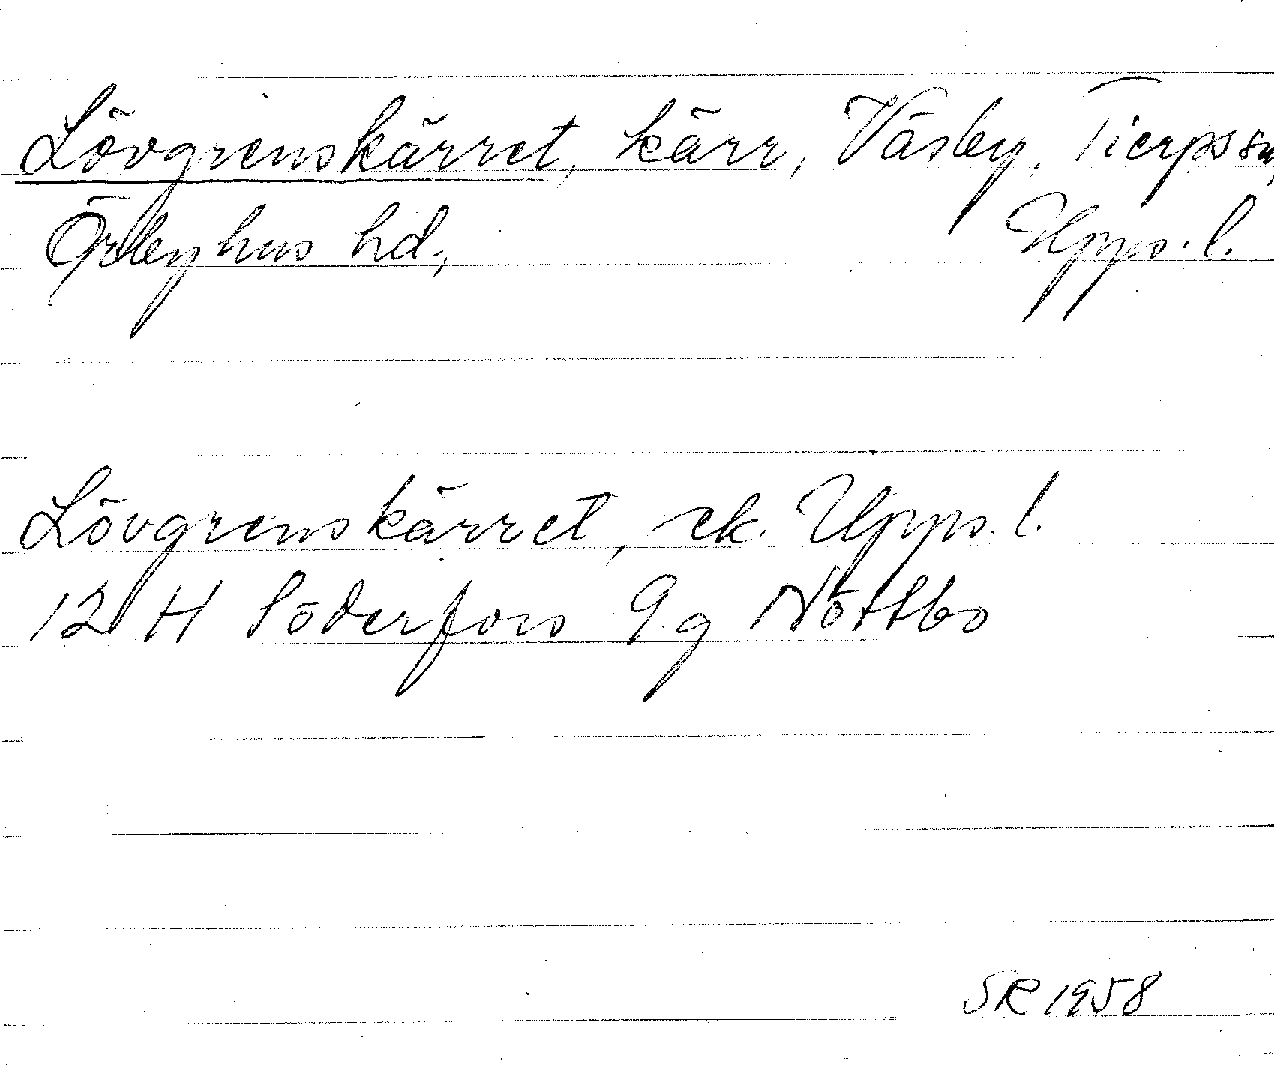 Lövgrenskärret, kärr, Väsby, Tierps sn,
Örbyhus hd, Upps. l.
Lövgrenskärret, ek. Upps. l.
12 H Söderfors 9 g Nöttbo
SR 1958